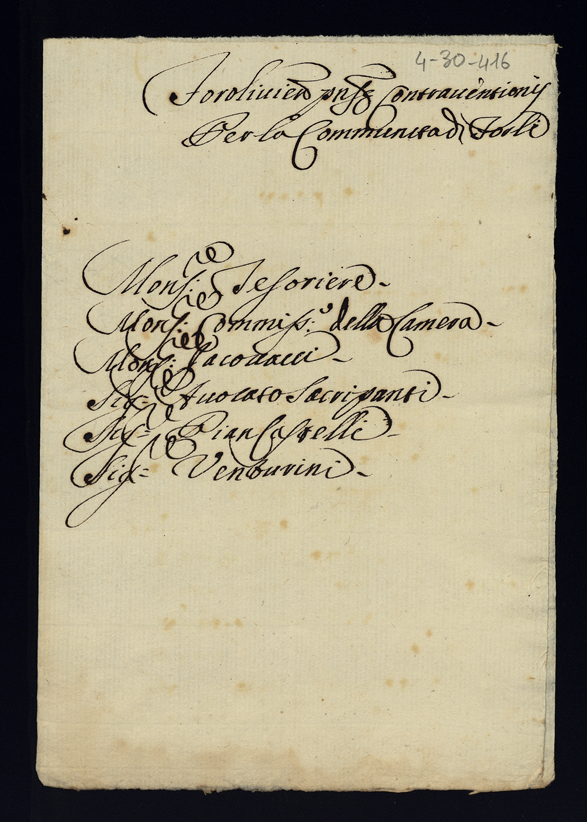 4-30-416
Foroliuien pnsæ Contrauentionis
Per la Communita di Forli
Mons:re Tesoriere-
Mons:re Commiss:o della Camera-
Mons:re Iacouacci-
Sig=re Auocato Sacripanti-
Sig=re Pian Castelli-
Sig=re Venturini-